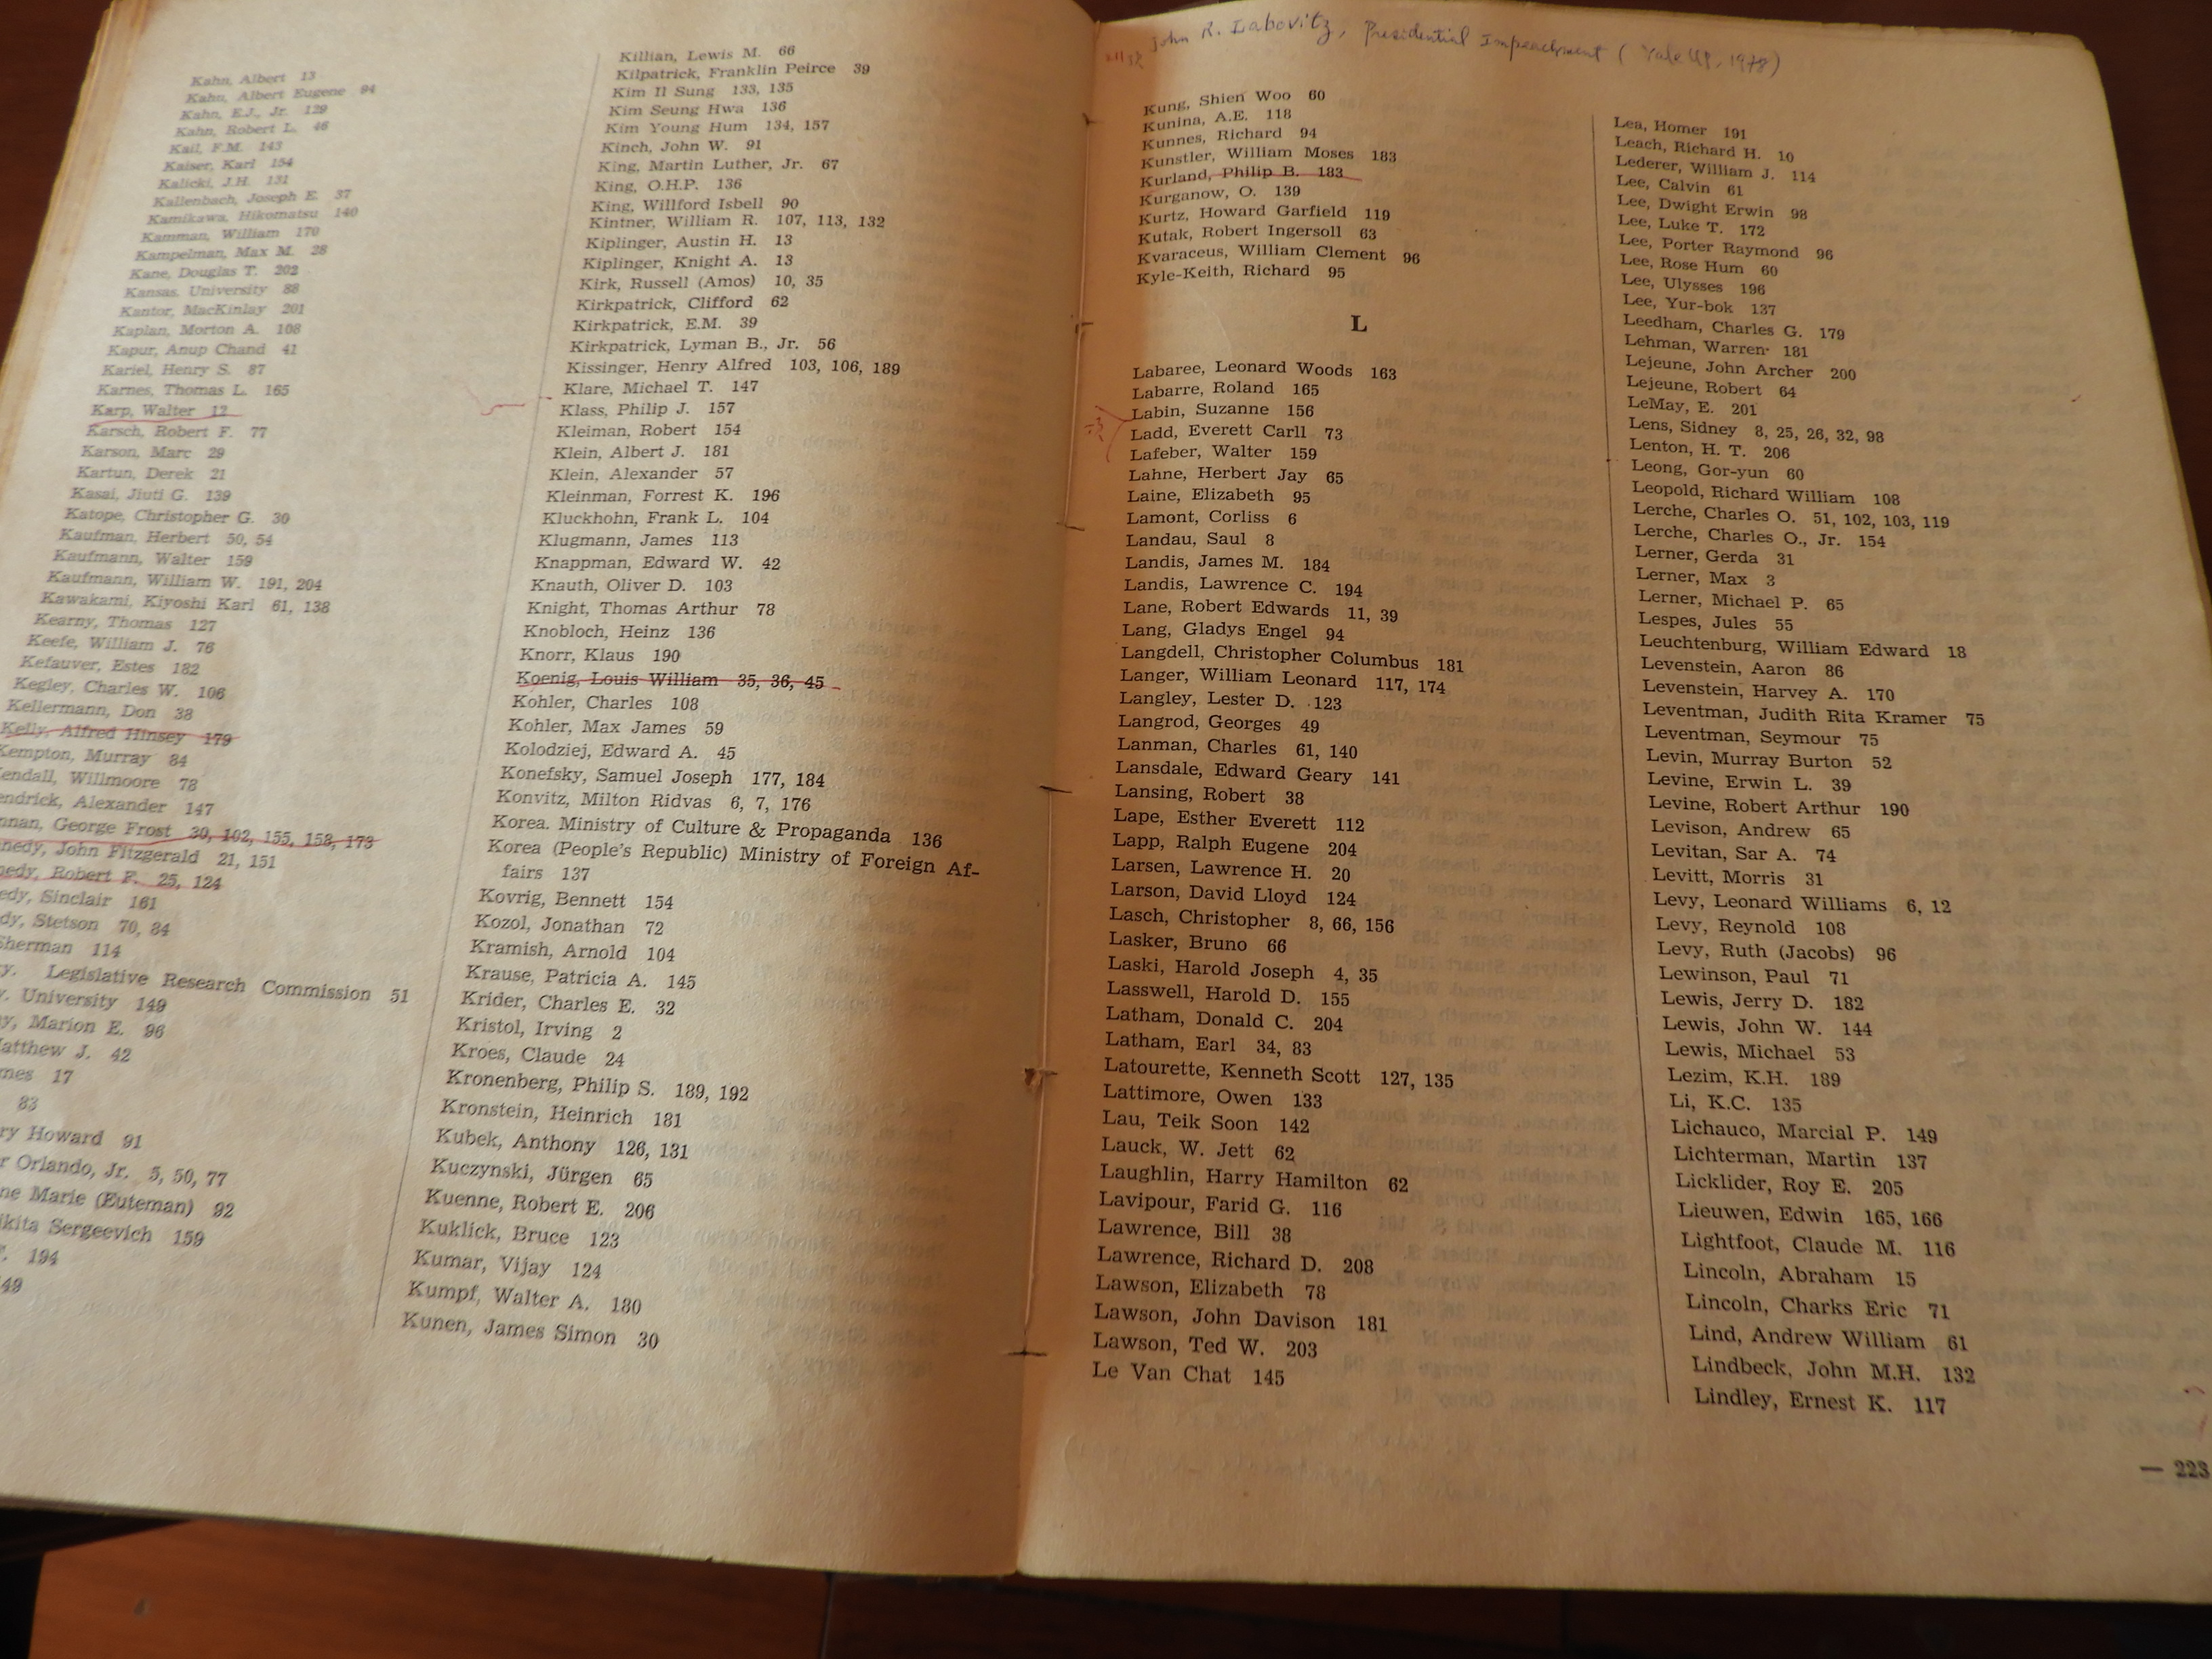 Kahn, Albert 13
Kahn, Albert Eugene 94
Kahn, E.J., Jr. 129
Kahn, Robert L. 46
Kail, F.M. 143
Kaiser, Karl 154
Kalicki, J.H. 131
Kallenbach, Joseph E. 37
Kamikawa, Hikomatsu 140
Kamman, William 170
Kampelman, Max M. 28
Kane, Douglas T. 202
Kansas. University 88
Kantor, MacKinlay 201
Kaplan, Morton A. 108
Kapur, Anup Chand 41
Kariel, Henry S. 87
Karnes, Thomas L. 165
Karp, Walter 12
Karsch, Robert F. 77
Karson, Marc 29
Kartun, Derek 21
Kasai, Jiuti G. 139
Katope, Christopher G. 30
Kaufman, Herbert 50, 54
Kaufmann, Walter 159
Kaufmann, William W. 191, 204
Kawakami, Kiyoshi Karl 61, 138
Kearny, Thomas 127
Keefe, William J. 76
Kefauver, Estes 182
Kegley, Charles W. 106
Kellermann, Don 38
Kelly, Alfred Hinsey 179
Kempton, Murray 84
endall, Willmoore 78
endrick, Alexander 147
nnan, George Frost 30, 102, 155, 158, 173
nedy, John Fitzgerald 21, 151
nedy, Robert F. 25, 124
edy, Sinclair 161
dy, Stetson 70, 84
Sherman 114
y. Legislative Research Commission 51
y. University 149
y, Marion E. 96
atthew J. 42
mes 17
83
ry Howard 91
r Orlando, Jr. 5, 50, 77
ne Marie (Euteman) 92
ikita Sergeevich 159
. 194
49
Killian, Lewis M. 66
Kilpatrick, Franklin Peirce 39
Kim Il Sung 133, 135
Kim Seung Hwa 136
Kim Young Hum 134, 157
Kinch, John W. 91
King, Martin Luther, Jr. 67
King, O.H.P. 136
King, Willford Isbell 90
Kintner, William R. 107, 113, 132
Kiplinger, Austin H. 13
Kiplinger, Knight A. 13
Kirk, Russell (Amos) 10, 35
Kirkpatrick, Clifford 62
Kirkpatrick, E.M. 39
Kirkpatrick, Lyman B., Jr. 56
Kissinger, Henry Alfred 103, 106, 189
Klare, Michael T. 147
Klass, Philip J. 157
Kleiman, Robert 154
Klein, Albert J. 181
Klein, Alexander 57
Kleinman, Forrest K. 196
Kluckhohn, Frank L. 104
Klugmann, James 113
Knappman, Edward W. 42
Knauth, Oliver D. 103
Knight, Thomas Arthur 78
Knobloch, Heinz 136
Knorr, Klaus 190
Koenig, Louis William 35, 36, 45
Kohler, Charles 108
Kohler, Max James 59
Kolodziej, Edward A. 45
Konefsky, Samuel Joseph 177, 184
Konvitz, Milton Ridvas 6, 7, 176
Korea. Ministry of Culture & Propaganda 136
Korea (People's Republic) Ministry of Foreign Af-
fairs 137
Kovrig, Bennett 154
Kozol, Jonathan 72
Kramish, Arnold 104
Krause, Patricia A. 145
Krider, Charles E. 32
Kristol, Irving 2
Kroes, Claude 24
Kronenberg, Philip S. 189, 192
Kronstein, Heinrich 181
Kubek, Anthony 126, 131
Kuczynski, Jürgen 65
Kuenne, Robert E. 206
Kuklick, Bruce 123
Kumar, Vijay 124
Kumpf, Walter A. 180
Kunen, James Simon 30
John R. Labovitz, Presidential Impeachment (Yale UP, 1978)
Kung, Shien Woo 60
Kunina, A.E. 118
Kunnes, Richard 94
Kunstler, William Moses 183
Kurland, Philip B. 183
Kurganow, O. 139
Kurtz, Howard Garfield 119
Kutak, Robert Ingersoll 63
Kvaraceus, William Clement 96
Kyle-Keith, Richard 95
L
Labaree, Leonard Woods 163
Labarre, Roland 165
Labin, Suzanne 156
Ladd, Everett Carll 73
Lafeber, Walter 159
Lahne, Herbert Jay 65
Laine, Elizabeth 95
Lamont, Corliss 6
Landau, Saul 8
Landis, James M. 184
Landis, Lawrence C. 194
Lane, Robert Edwards 11, 39
Lang, Gladys Engel 94
Langdell, Christopher Columbus 181
Langer, William Leonard 117, 174
Langley, Lester D. 123
Langrod, Georges 49
Lanman, Charles 61, 140
Lansdale, Edward Geary 141
Lansing, Robert 38
Lape, Esther Everett 112
Lapp, Ralph Eugene 204
Larsen, Lawrence H. 20
Larson, David Lloyd 124
Lasch, Christopher 8, 66, 156
Lasker, Bruno 66
Laski, Harold Joseph 4, 35
Lasswell, Harold D. 155
Latham, Donald C. 204
Latham, Earl 34, 83
Latourette, Kenneth Scott 127, 135
Lattimore, Owen 133
Lau, Teik Soon 142
Lauck, W. Jett 62
Laughlin, Harry Hamilton 62
Lavipour, Farid G. 116
Lawrence, Bill 38
Lawrence, Richard D. 208
Lawson, Elizabeth 78
Lawson, John Davison 181
Lawson, Ted W. 203
Le Van Chat 145
Lea, Homer 191
Leach, Richard H. 10
Lederer, William J. 114
Lee, Calvin 61
Lee, Dwight Erwin 98
Lee, Luke T. 172
Lee, Porter Raymond 96
Lee, Rose Hum 60
Lee, Ulysses 196
Lee, Yur-bok 137
Leedham, Charles G. 179
Lehman, Warren 181
Lejeune, John Archer 200
Lejeune, Robert 64
LeMay, E. 201
Lens, Sidney 8, 25, 26, 32, 98
Lenton, H. T. 206
Leong, Gor-yun 60
Leopold, Richard William 108
Lerche, Charles O. 51, 102, 103, 119
Lerche, Charles O., Jr. 154
Lerner, Gerda 31
Lerner, Max 3
Lerner, Michael P. 65
Lespes, Jules 55
Leuchtenburg, William Edward 18
Levenstein, Aaron 86
Levenstein, Harvey A. 170
Leventman, Judith Rita Kramer 75
Leventman, Seymour 75
Levin, Murray Burton 52
Levine, Erwin L. 39
Levine, Robert Arthur 190
Levison, Andrew 65
Levitan, Sar A. 74
Levitt, Morris 31
Levy, Leonard Williams 6, 12
Levy, Reynold 108
Levy, Ruth (Jacobs) 96
Lewinson, Paul 71
Lewis, Jerry D. 182
Lewis, John W. 144
Lewis, Michael 53
Lezim, K.H. 189
Li, K.C. 135
Lichauco, Marcial P. 149
Lichterman, Martin 137
Licklider, Roy E. 205
Lieuwen, Edwin 165, 166
Lightfoot, Claude M. 116
Lincoln, Abraham 15
Lincoln, Charks Eric 71
Lind, Andrew William 61
Lindbeck, John M.H. 132
Lindley, Ernest K. 117
— 223